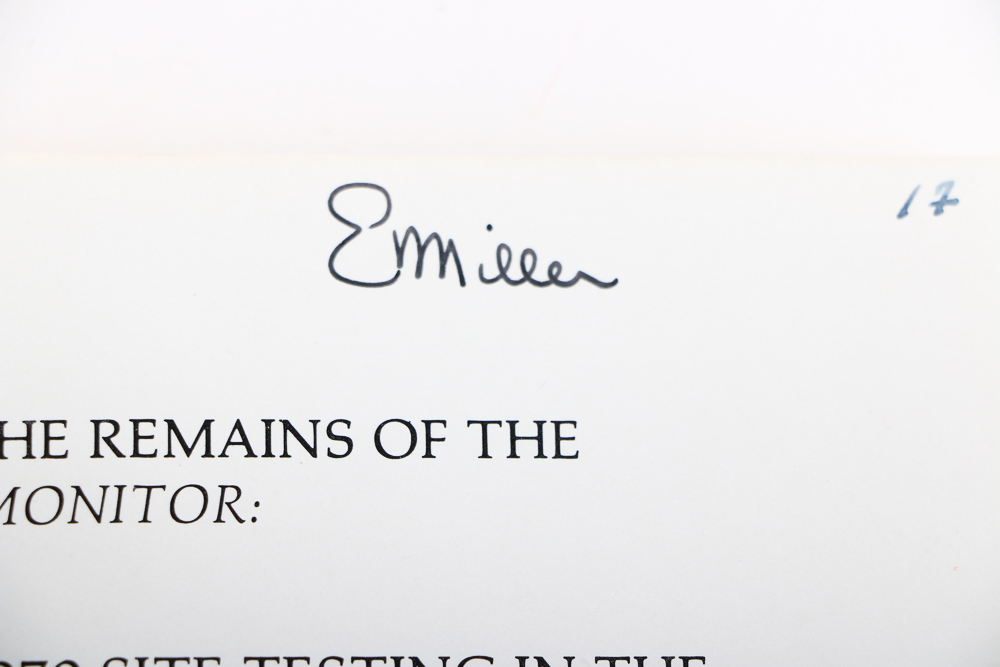 EMMiller 17
HE REMAINS OF THE
MONITOR:
979 SITE TESTING IN THE